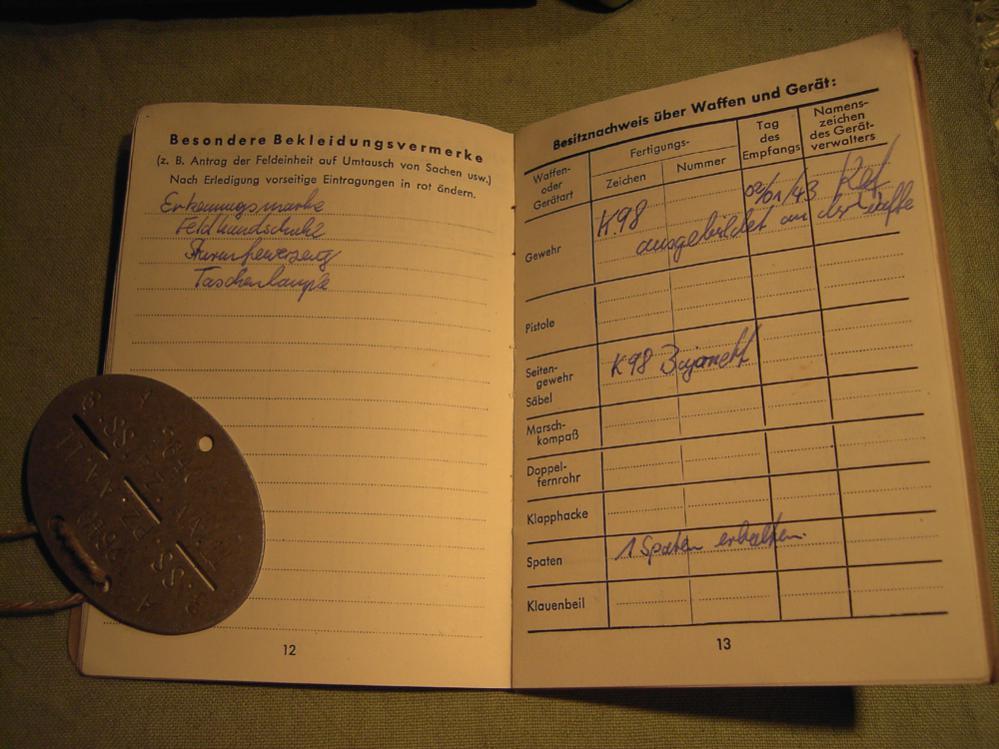 Besondere Bekleidungsvermerke
(z. B. Antrag der Feldeinheit auf Umtausch von Sachen usw.)
Nach Erledigung vorseitige Eintragungen in rot ändern.
Erkennungsmarke
Feldhandschuhe
Sturmfeuerzeug
Taschenlampe
12
Besitznachweis über Waffen und Gerät:
Waffen-
oder
Gerätart
Fertigungs-
Zeichen
Nummer
Tag
des
Empfangs
Namens-
zeichen
des Gerät-
verwalters
Gewehr
K98
02/01/43
ausgebildet an der Waffe
Pistole
Seiten-
gewehr
K98 Bajonett
Säbel
Marsch-
kompaß
Doppel-
fernrohr
Klapphacke
Spaten
1 Spaten erhalten
Klauenbeil
13